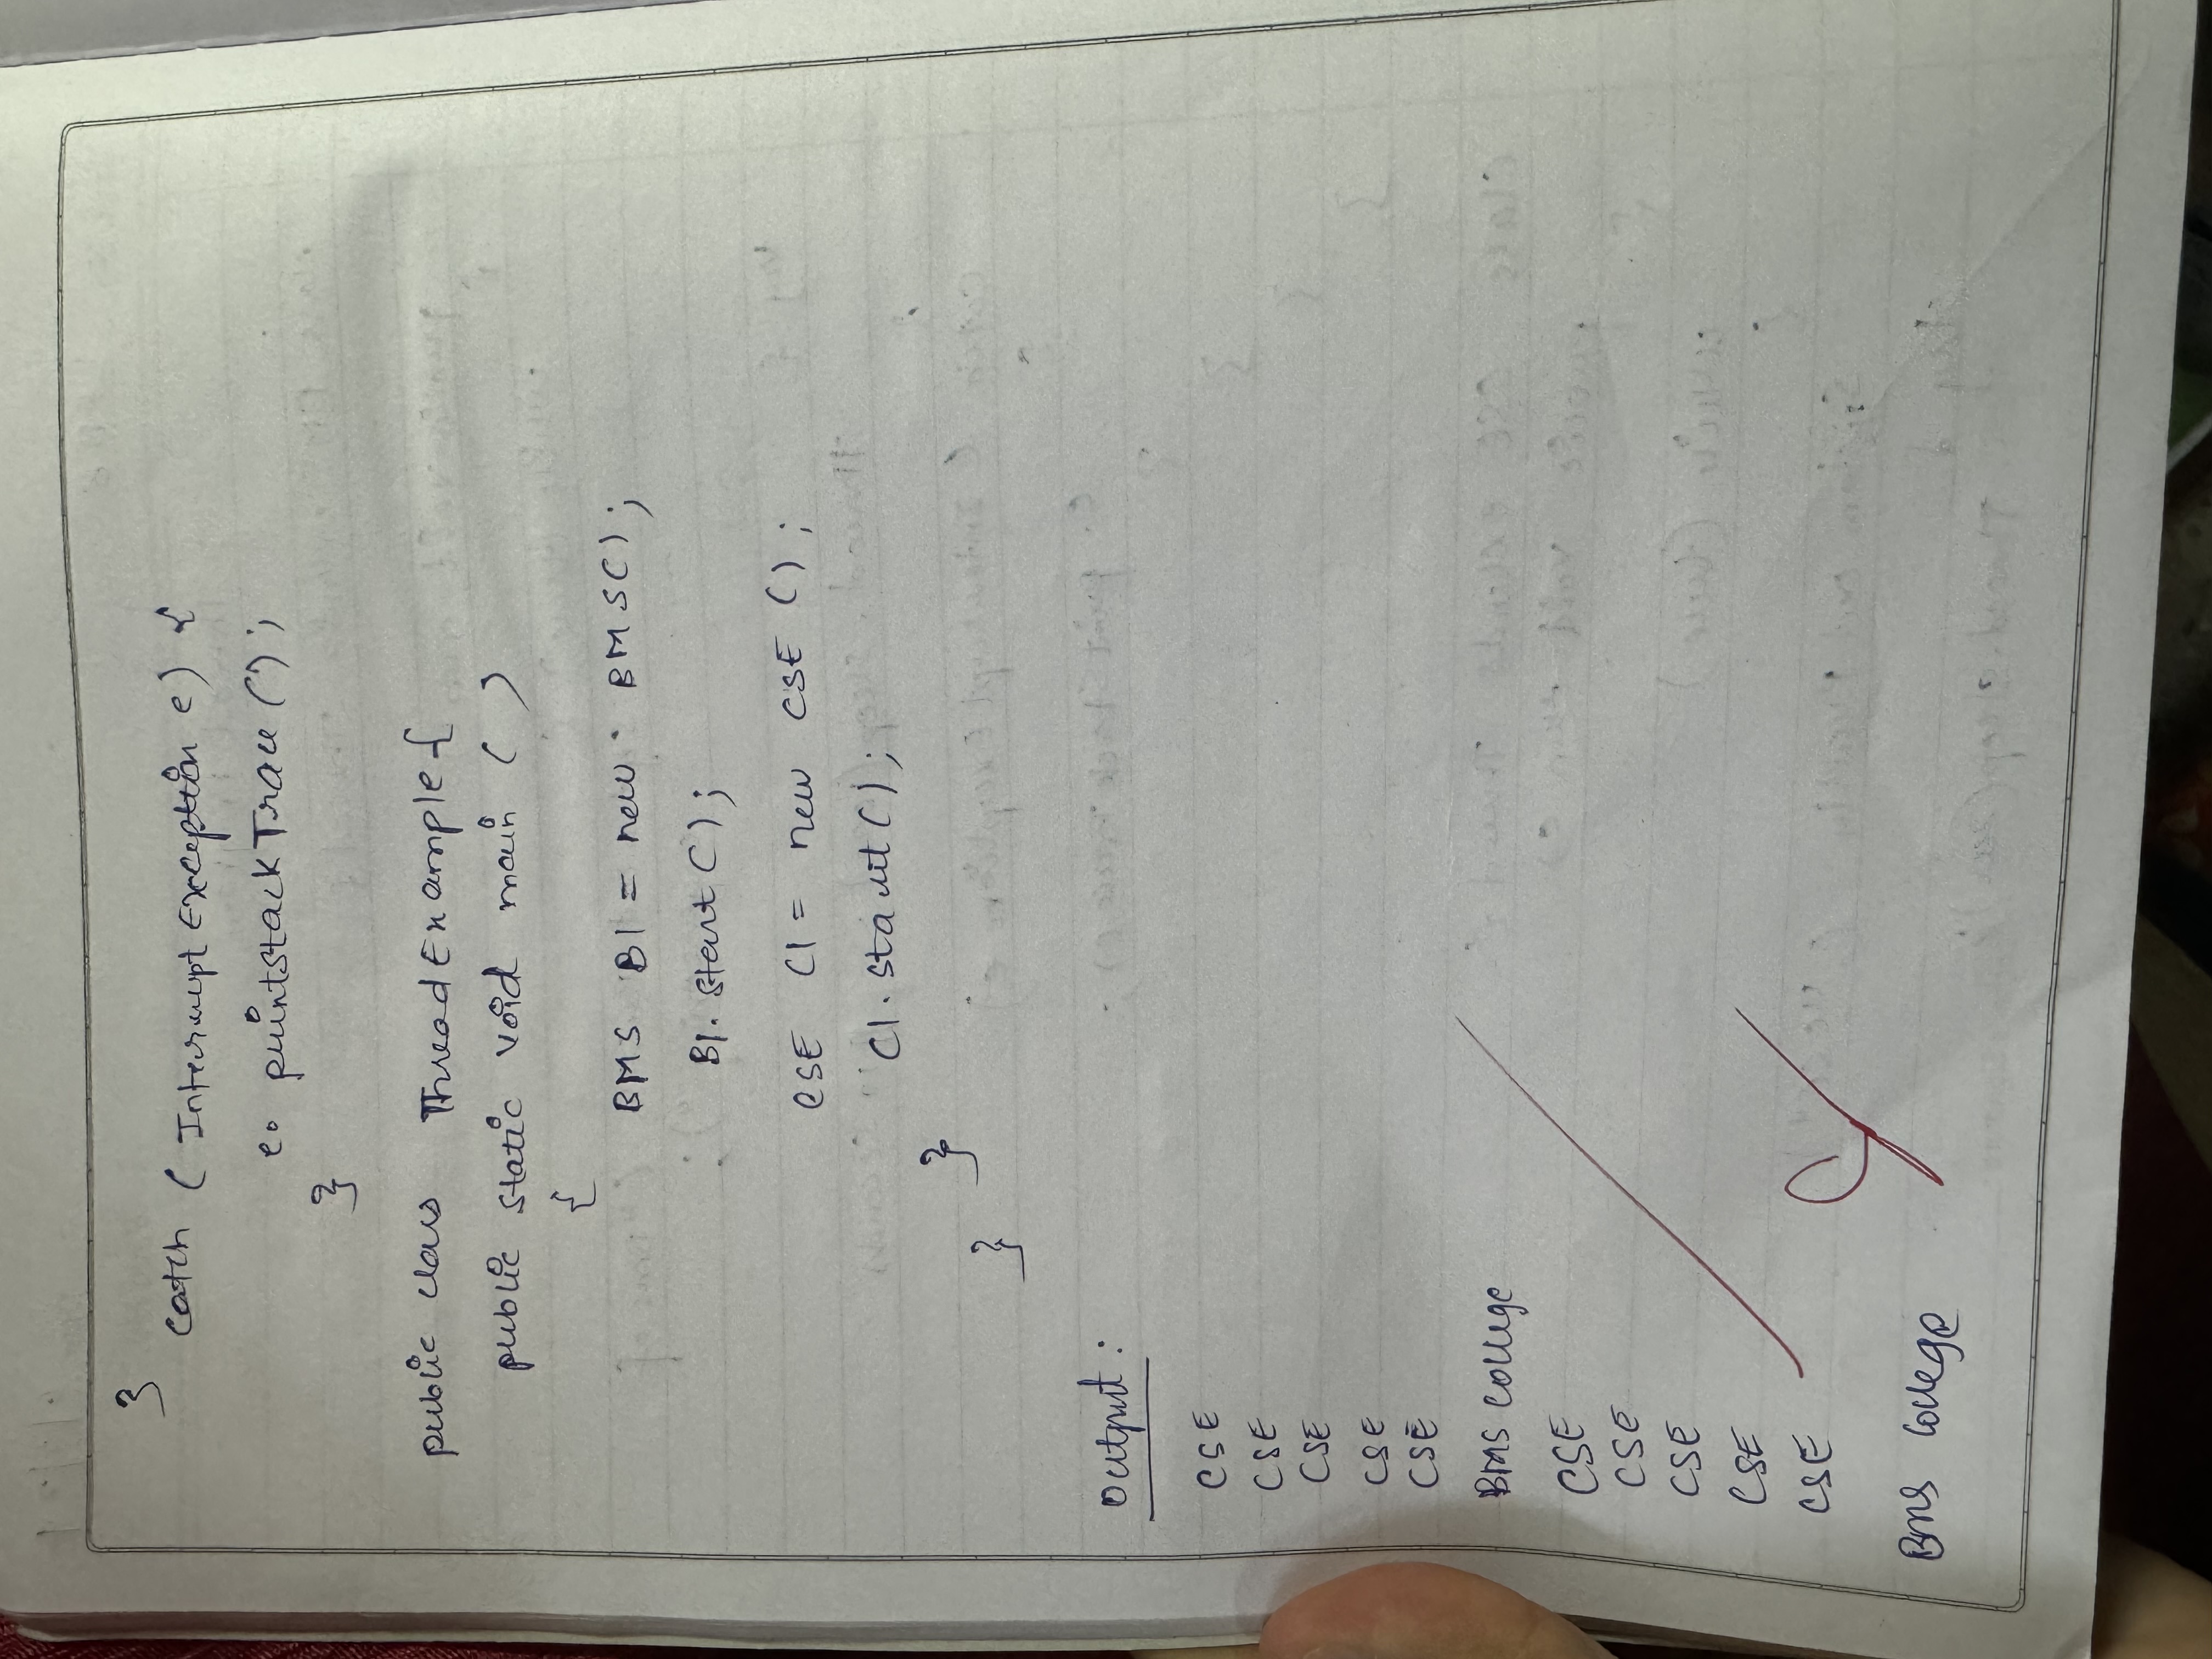 }
catch ( Interrupt Exception e) {
e. printstackTrace ();
}
public class ThreadExample {
public static void main ( )
{
BMS B1 = new BMS();
B1. start ();
CSE C1 = new CSE ();
C1. start ();
}
}
Output :
CSE
CSE
CSE
CSE
CSE
BMS College
CSE
CSE
CSE
CSE
CSE
BMS College